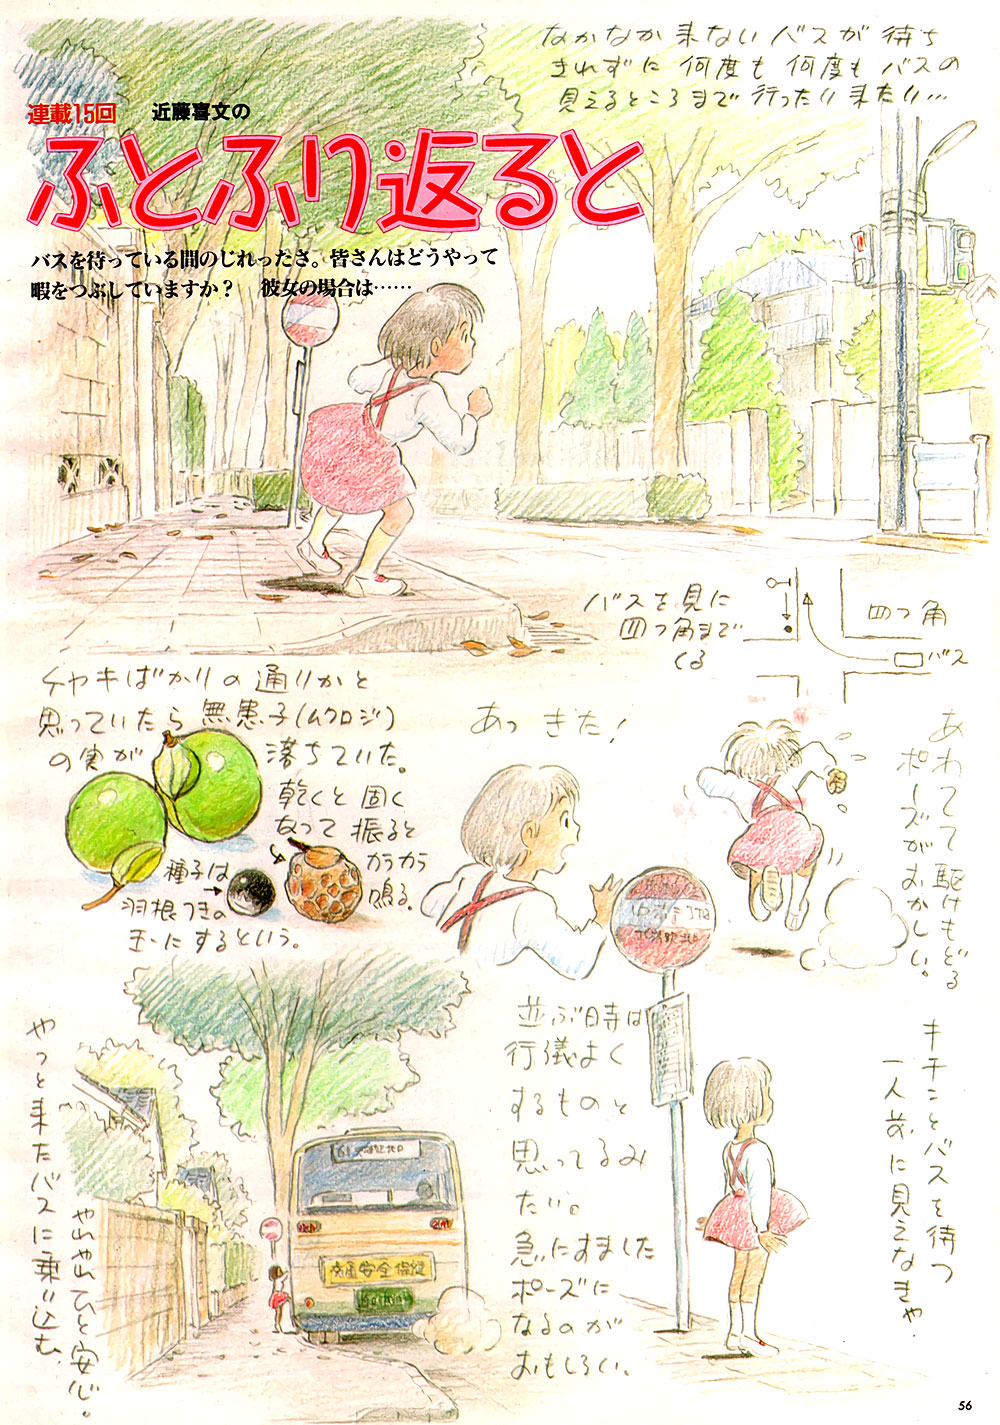 なかなか来ないバスが待ち
きれずに何度も何度もバスの
見えるところまで行ったり来たり…
連載15回 近藤喜文の
ふとふり返ると
バスを待っている間のじれったさ。皆さんはどうやって
暇をつぶしていますか? 彼女の場合は……
バスを見に
四つ角まで
くる
四つ角
バス
ケヤキばかりの通りかと
思っていたら無患子(ムクロジ)
の実が落ちていた。
乾くと固く
なって振ると
カラカラ
鳴る。
種子は
羽根つきの
玉にするという。
あっきた!
あわてて駆けもどる
ポーズがおかしい。
並ぶ時は
行儀よく
するものと
思ってるみ
たい。
急にすました
ポーズに
なるのが
おもしろい。
キチンとバスを待つ
一人前に見えなきゃ.
やっと来たバスに乗り込む.
やれやれひと安心.
交通安全
56